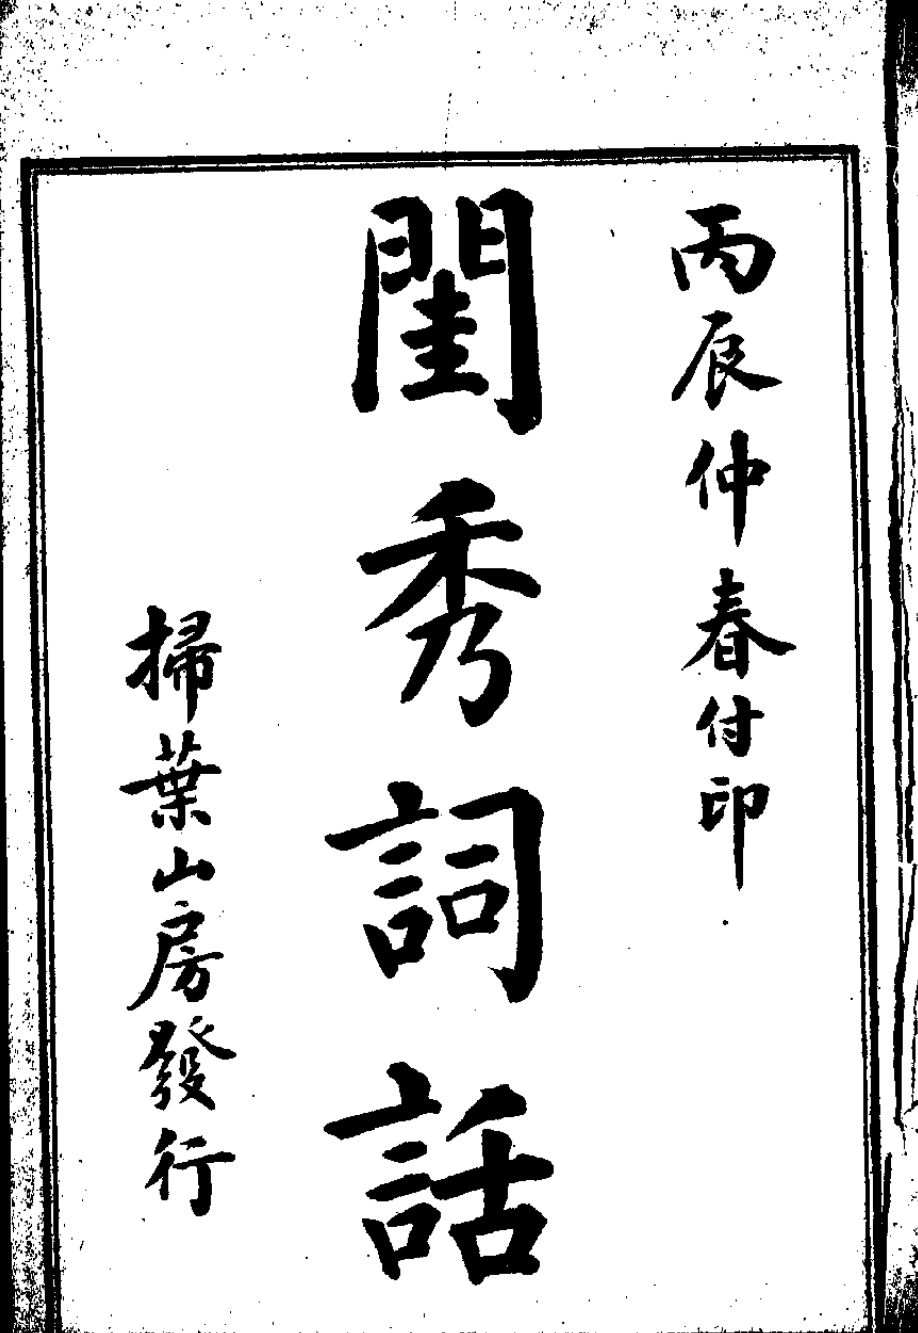 丙辰仲春付印
閨秀詞話
掃葉山房發行